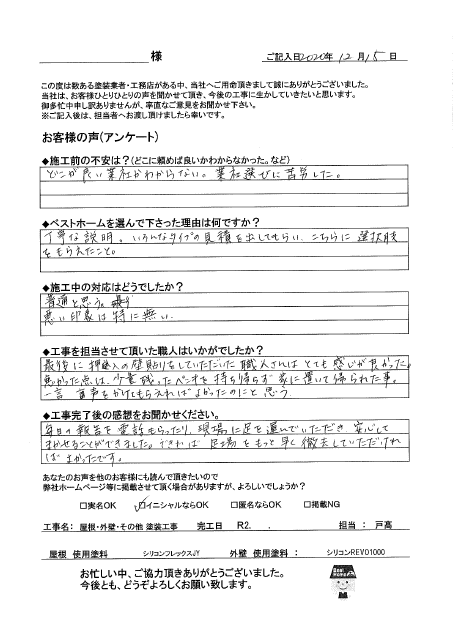 様
ご記入日2020年 12月15日
この度は数ある塗装業者・工務店がある中、当社へご用命頂きまして誠にありがとうございました。
当社は、お客様ひとりひとりの声を聞かせて頂き、今後の工事に生かしていきたいと思います。
御多忙中申し訳ありませんが、率直なご意見をお聞かせ下さい。
※ご記入後は、担当者へお渡し頂けましたら幸いです。
お客様の声(アンケート)
◆施工前の不安は？(どこに頼めば良いかわからなかった。など)
どこが良い業社かわからない。業社選びに苦労した。
◆ベストホームを選んで下さった理由は何ですか？
丁寧な説明。いろんなタイプの見積を出してもらい、こちらに選択肢
をもらえたこと。
◆施工中の対応はどうでしたか？
普通と思う。
悪い印象は特に無い。
◆工事を担当させて頂いた職人はいかがでしたか？
最後に押入の壁貼りをしていただいた職人さんはとても感じが良かった。
悪かった点は、少量残ったペンキを持ち帰らず家に置いて帰られた事。
一言声をかけてもらえればよかったのにと思う。
◆工事完了後の感想をお聞かせください。
毎日の報告を電話もらったり、現場に足を運んでいただき、安心して
まかせることができました。できれば足場をもっと早く撤去していただけれ
ばよかったです。
あなたのお声を他のお客様にも読んで頂きたいので
弊社ホームページ等に掲載させて頂く場合がありますが、よろしいでしょうか？
□実名OK ☑イニシャルならOK □匿名ならOK □掲載NG
工事名： 屋根・外壁・その他 塗装工事 完工日 R2. . 担当： 戸高
屋根 使用塗料 シリコンフレックスJY 外壁 使用塗料 ： シリコンREVO1000
お忙しい中、ご協力頂きありがとうございました。
今後とも、どうぞよろしくお願い致します。